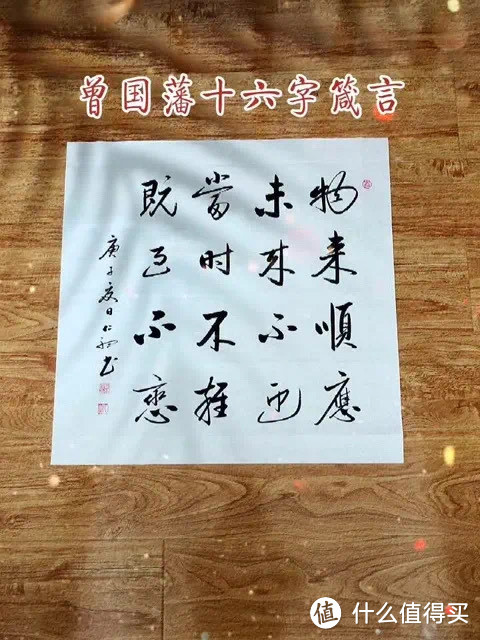 曾国藩十六字箴言
物来順應
未来不迎
當时不雜
既过不戀
庚子夏日仁书
值 什么值得买